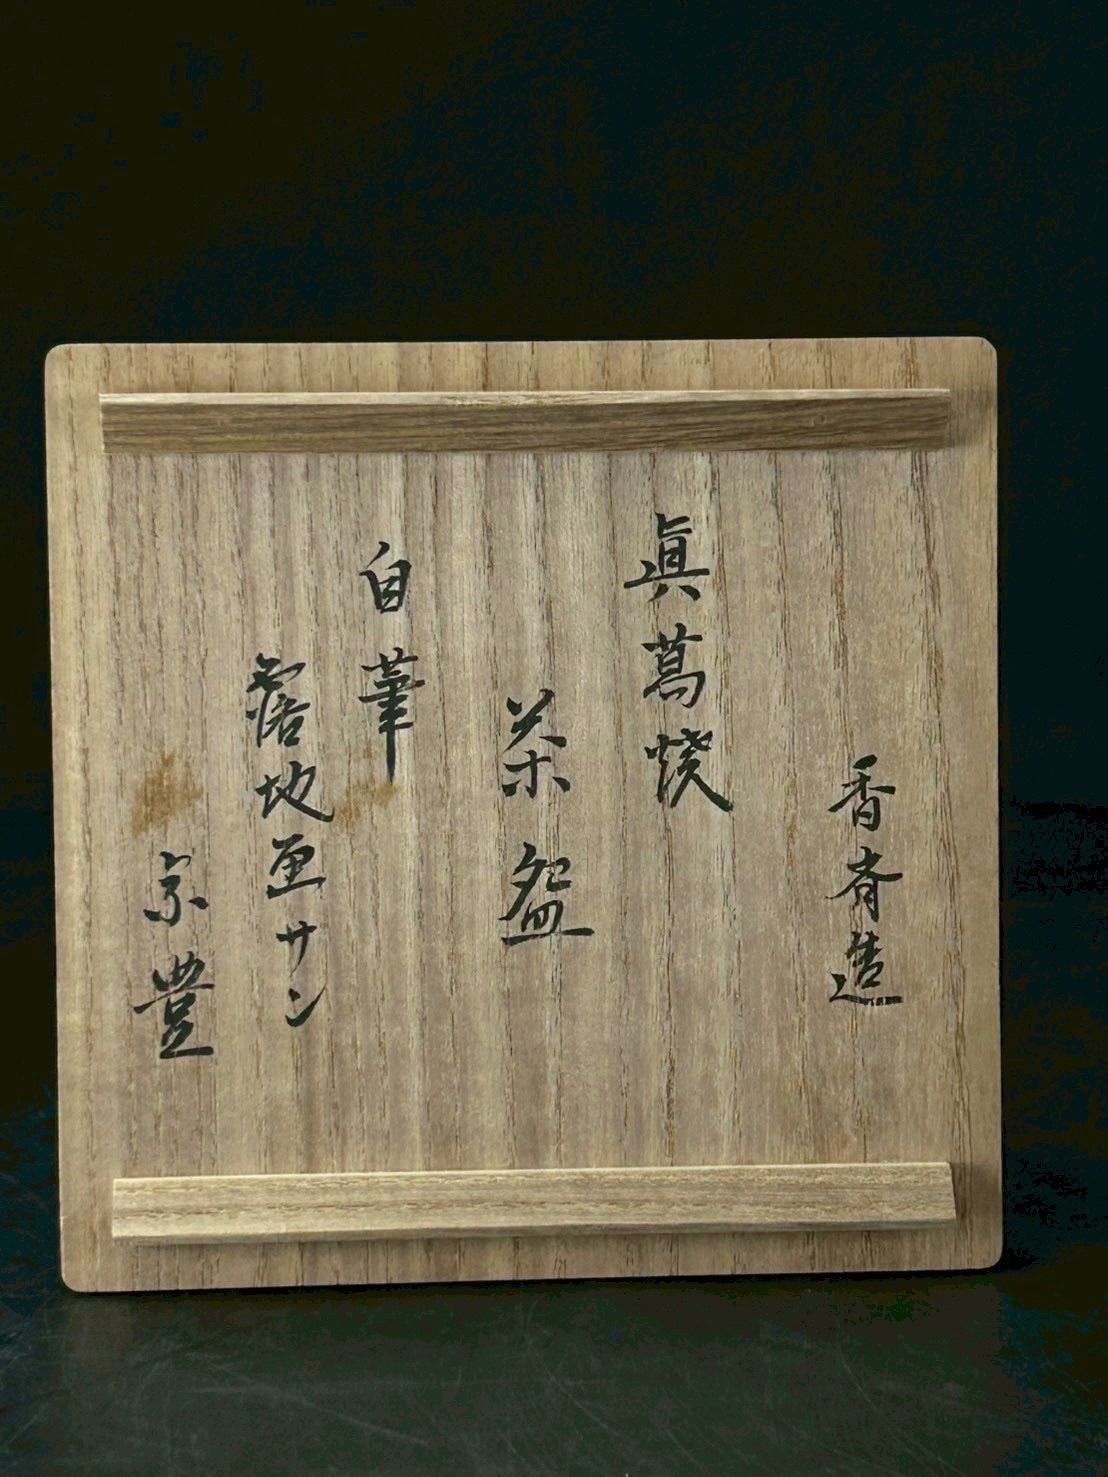 香斎造
眞葛焼
茶盌
自筆
露地画サン
宗豊